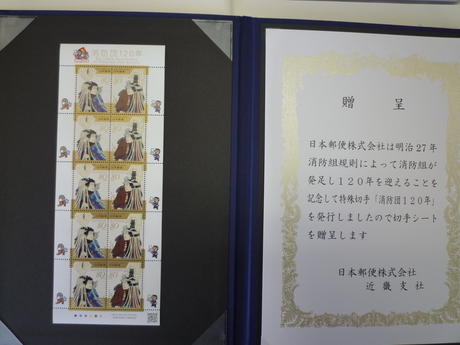 消防団120年
80
80
80
80
80
80
贈呈
日本郵便株式会社は明治27年
消防組規則によって消防組が
発足し120年を迎えることを
記念して特殊切手「消防団120年」
を発行しましたので切手シート
を贈呈します
日本郵便株式会社
近畿支社